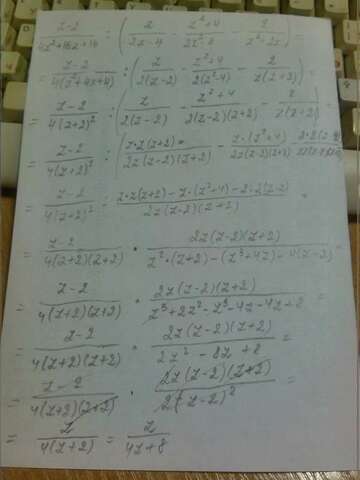 z-2 / 4z²+16z+16 : ( z / 2z-4 - z²+4 / 2z²-8 - 2 / z²+2z ) =
= z-2 / 4(z²+4z+4) : ( z / 2(z-2) - z²+4 / 2(z²-4) - 2 / z(z+2) ) =
= z-2 / 4(z+2)² : ( z / 2(z-2) - z²+4 / 2(z-2)(z+2) - 2 / z(z+2) ) =
= z-2 / 4(z+2)² : ( z·z(z+2) / 2z(z-2)(z+2) - z·(z²+4) / 2z(z-2)(z+2) - 2·2(z-2) / 2z(z-2)(z+2)
= z-2 / 4(z+2)² : z·z(z+2)-z·(z²+4)-2·2(z-2) / 2z(z-2)(z+2) =
= z-2 / 4(z+2)(z+2) · 2z(z-2)(z+2) / z²·(z+2)-(z³+4z)-4(z-2) =
= z-2 / 4(z+2)(z+2) · 2z(z-2)(z+2) / z³+2z²-z³-4z-4z+8 =
= z-2 / 4(z+2)(z+2) · 2z(z-2)(z+2) / 2z²-8z+8 =
= z-2 / 4(z+2)(z+2) · 2z(z-2)(z+2) / 2(z-2)² =
= z / 4(z+2) = z / 4z+8